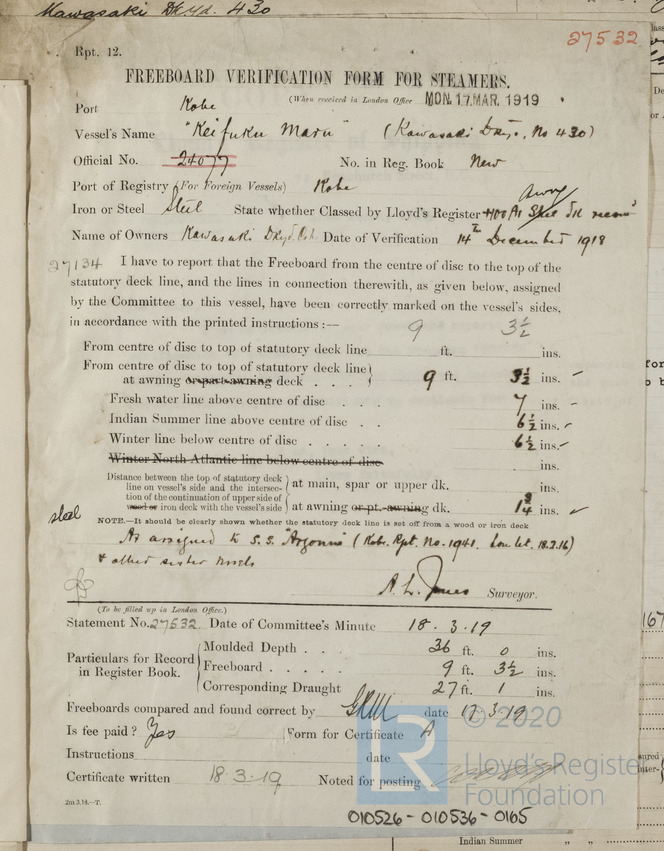 Kawasaki Dkyd. 430
27532
Rpt. 12.
FREEBOARD VERIFICATION FORM FOR STEAMERS.
(When received in London Office MON. 17. MAR. 1919
Port Kobe
Vessel's Name "Keifuku Maru" (Kawasaki Dky., No 430)
Official No. 24077 No. in Reg. Book New
Port of Registry (For Foreign Vessels) Kobe
Iron or Steel Steel State whether Classed by Lloyd's Register +100 A1
Name of Owners Kawasaki Dkyd Co. Date of Verification 14th December 1918
27134 I have to report that the Freeboard from the centre of disc to the top of the
statutory deck line, and the lines in connection therewith, as given below, assigned
by the Committee to this vessel, have been correctly marked on the vessel's sides,
in accordance with the printed instructions :—
9 3½
From centre of disc to top of statutory deck line ft. ins.
From centre of disc to top of statutory deck line
at awning or part awning deck . . . 9 ft. 3½ ins.
Fresh water line above centre of disc . . . 7 ins.
Indian Summer line above centre of disc . . 6½ ins.
Winter line below centre of disc . . . . . 6½ ins.
Winter North Atlantic line below centre of disc ins.
Distance between the top of statutory deck
line on vessel's side and the intersec-
tion of the continuation of upper side of
wood or iron deck with the vessel's side
at main, spar or upper dk. ins.
at awning or pt. awning dk. 1¾ ins.
steel
NOTE.—It should be clearly shown whether the statutory deck line is set off from a wood or iron deck
As assigned to S.S. "Argonne" (Kobe Rpt. No. 1941. Lon let. 18.3.16)
& other sister vessels
A. L. Jones Surveyor.
(To be filled up in London Office.)
Statement No. 27532 Date of Committee's Minute 18.3.19
Particulars for Record
in Register Book.
Moulded Depth . . . 36 ft. 0 ins.
Freeboard . . . . . 9 ft. 3½ ins.
Corresponding Draught 27 ft. 1 ins.
Freeboards compared and found correct by date 17.3.19
Is fee paid? Yes Form for Certificate A
Instructions date
Certificate written 18.3.19 Noted for posting
2m.3.18.—T.
© 2020
Lloyd's Register
Foundation
LR
010526-010536-0165
Indian Summer " "